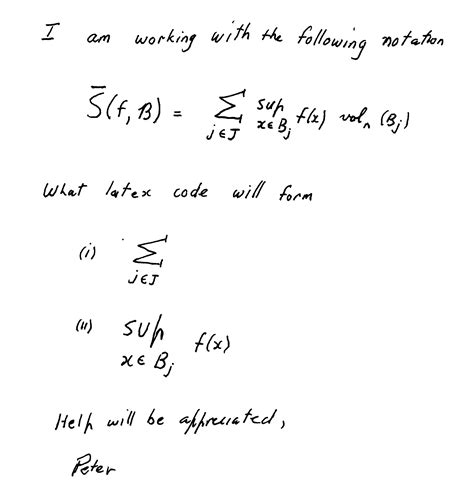 I am working with the following notation
S̄(f, B) = ∑_{j∈J} sup_{x∈B_j} f(x) vol_n (B_j)
What latex code will form
(i) ∑_{j∈J}
(ii) sup_{x∈B_j} f(x)
Help will be appreciated,
Peter